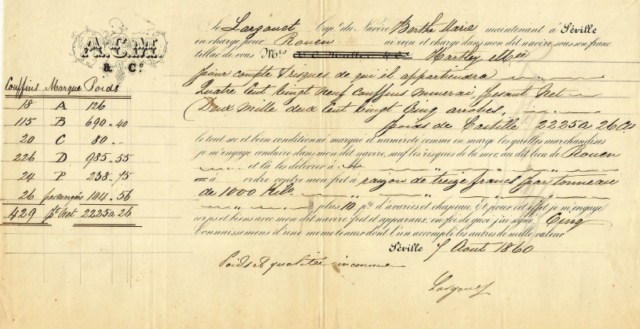 A.C.M.
& Cº
Couffins Marque Poids
18 A 126
115 B 690.40
20 C 80.—
226 D 985.55
24 P 238.75
26 104.56
429 Net 2225 a 26
Je Largouet Capne. du Navire Berthe Marie maintenant à Séville
en charge pour Rouen ai reçu et chargé dans mon dit navire, sous son franc
tillac de vous Mrs Hartley &
pour compte et risques de qui il appartiendra
Quatre Cent Vingt Neuf Couffins minerai, pesant Net
Deux mille deux Cent Vingt Cinq arrobes,
poids de Castille 2225 a 26 @
le tout sec et bien conditionné marqué et numeroté comme en marge, lesquelles marchandises
je m'engage conduire dans mon dit navire, sauf les risques de la mer, au dit lieu de Rouen
et là les délivrer à Mr.
à ordre contre mon frêt à raison de treize francs par tonneau
de 1000 Kils
plus 10 p% d'avaries et chapeau. Et pour cet effet je m'engage
corps et biens avec mon dit navire frêt et apparaux, en foi de quoi j'ai signé Cinq
Connaissements d'une même teneur dont l'un accompli, les autres de nulle valeur
Séville 7 Aout 1860
Poids et qualité inconnue
Largouet